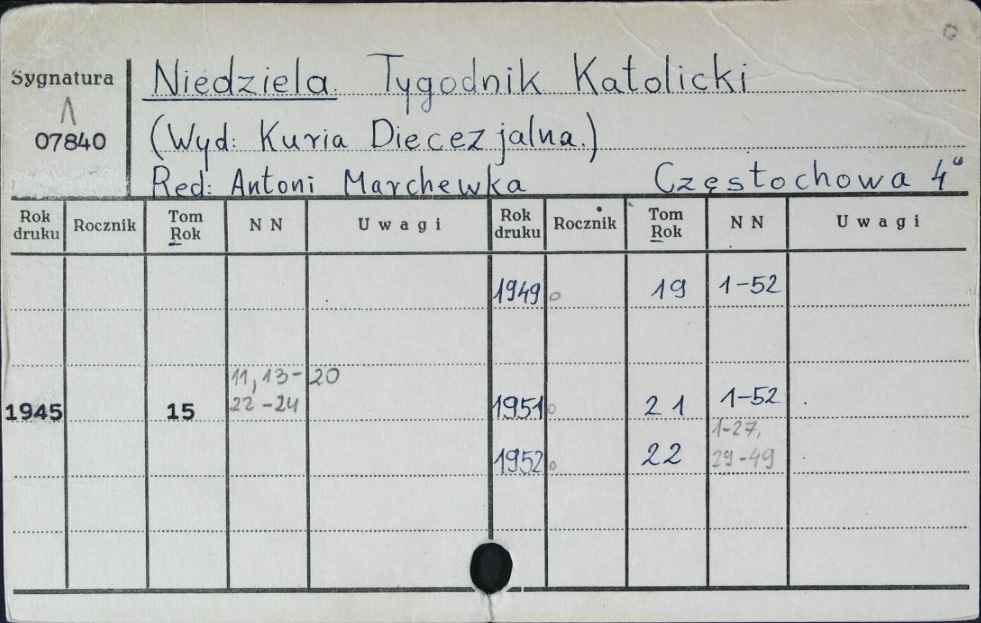 Sygnatura
07840
Niedziela. Tygodnik Katolicki
(Wyd: Kuria Diecezjalna.)
Red: Antoni Marchewka Częstochowa 4°
Rok druku Rocznik Tom Rok N N U w a g i Rok druku Rocznik Tom Rok N N U w a g i
1949 19 1-52
11, 13-20
1945 15 22-24 1951 21 1-52
1-27,
1952 22 29-49